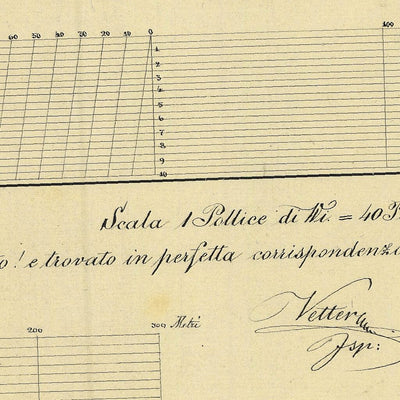 60 50 40 30 20 10 0 100
1
2
3
4
5
6
7
8
9
10
Scala 1 Pollice di Wi. = 40
o! e trovato in perfetta corrispondenza
200 300 Metri
Vetter
Isp: